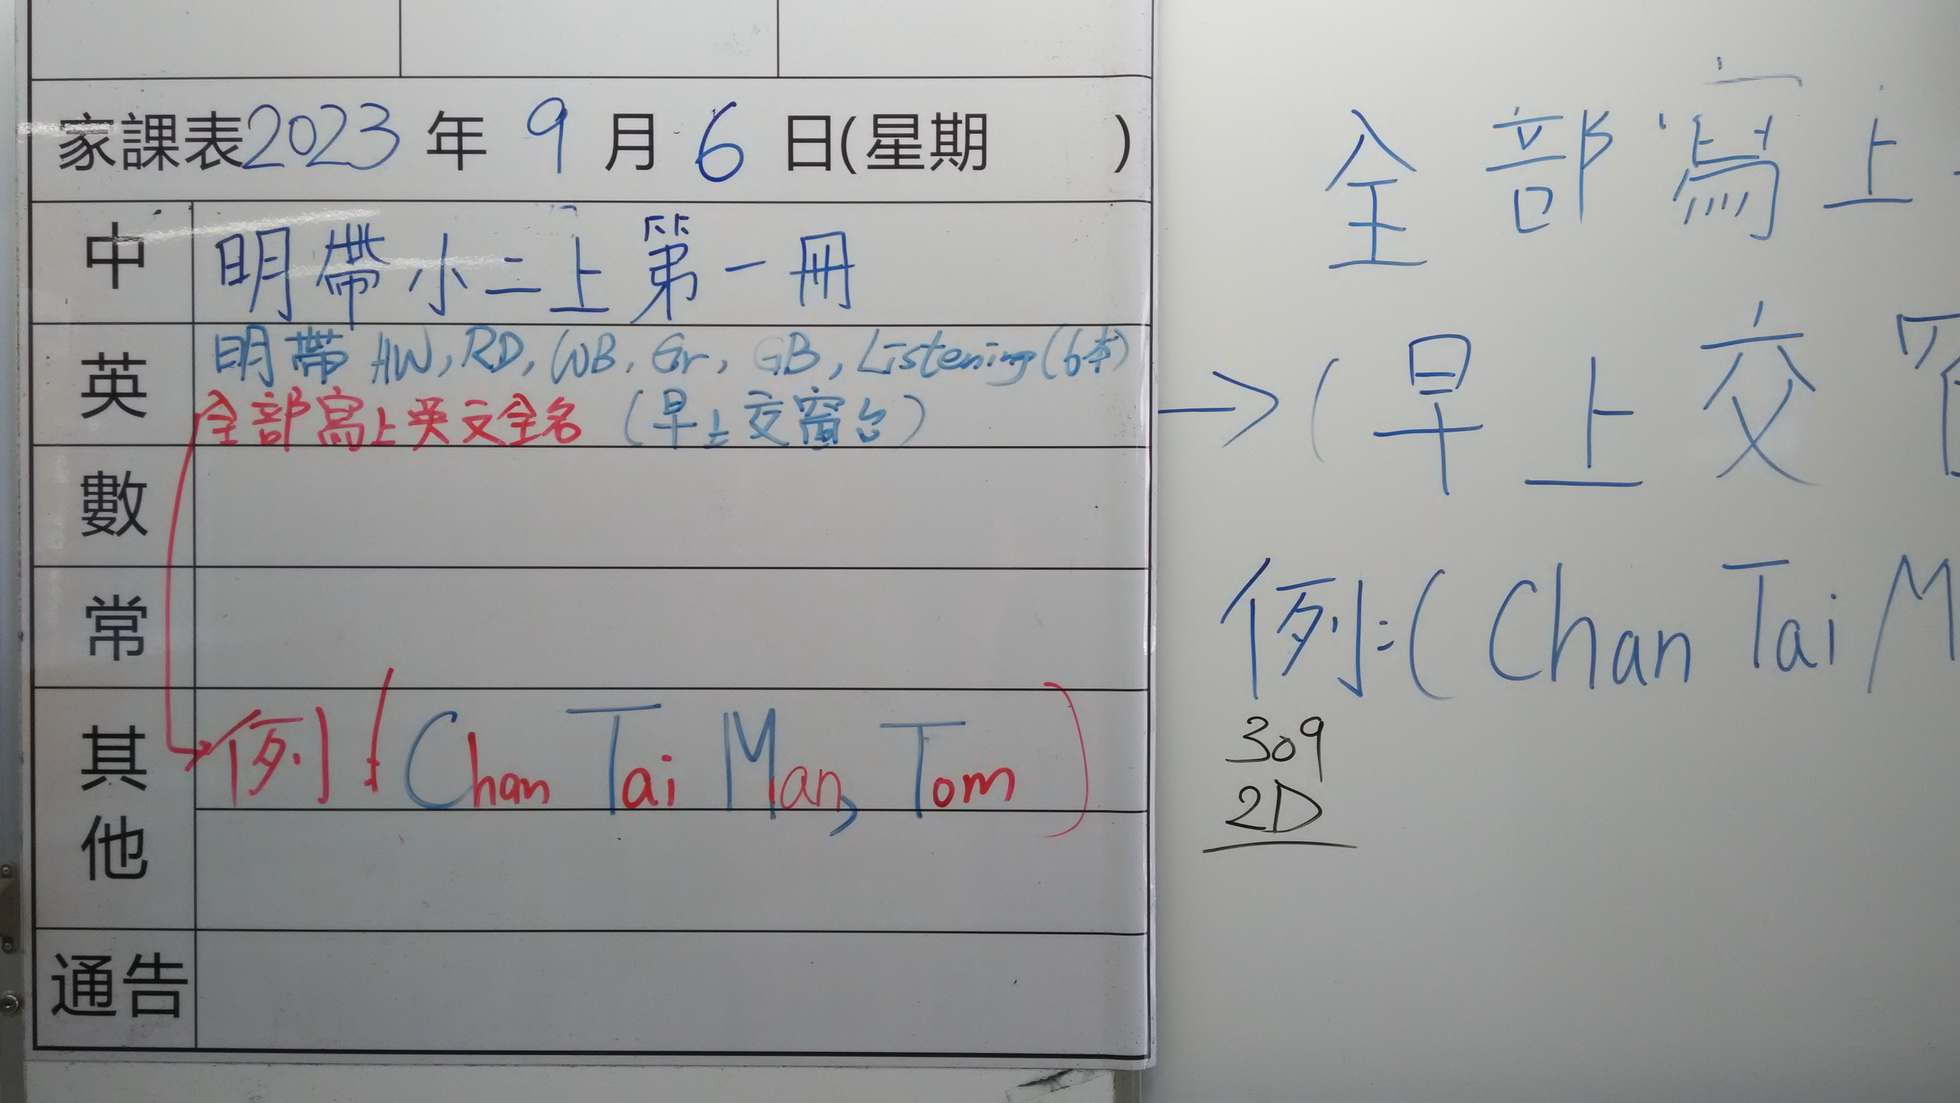 家課表2023年9月6日(星期 )
中 明帶小二上第一冊
英 明帶HW, RD, WB, Gr, GB, Listening (6本)
全部寫上英文全名 (早上交窗台)
數
常
其他 例 ( Chan Tai Man, Tom )
通告
全部寫上
→ (早上交
例:( Chan Tai M
309
2D